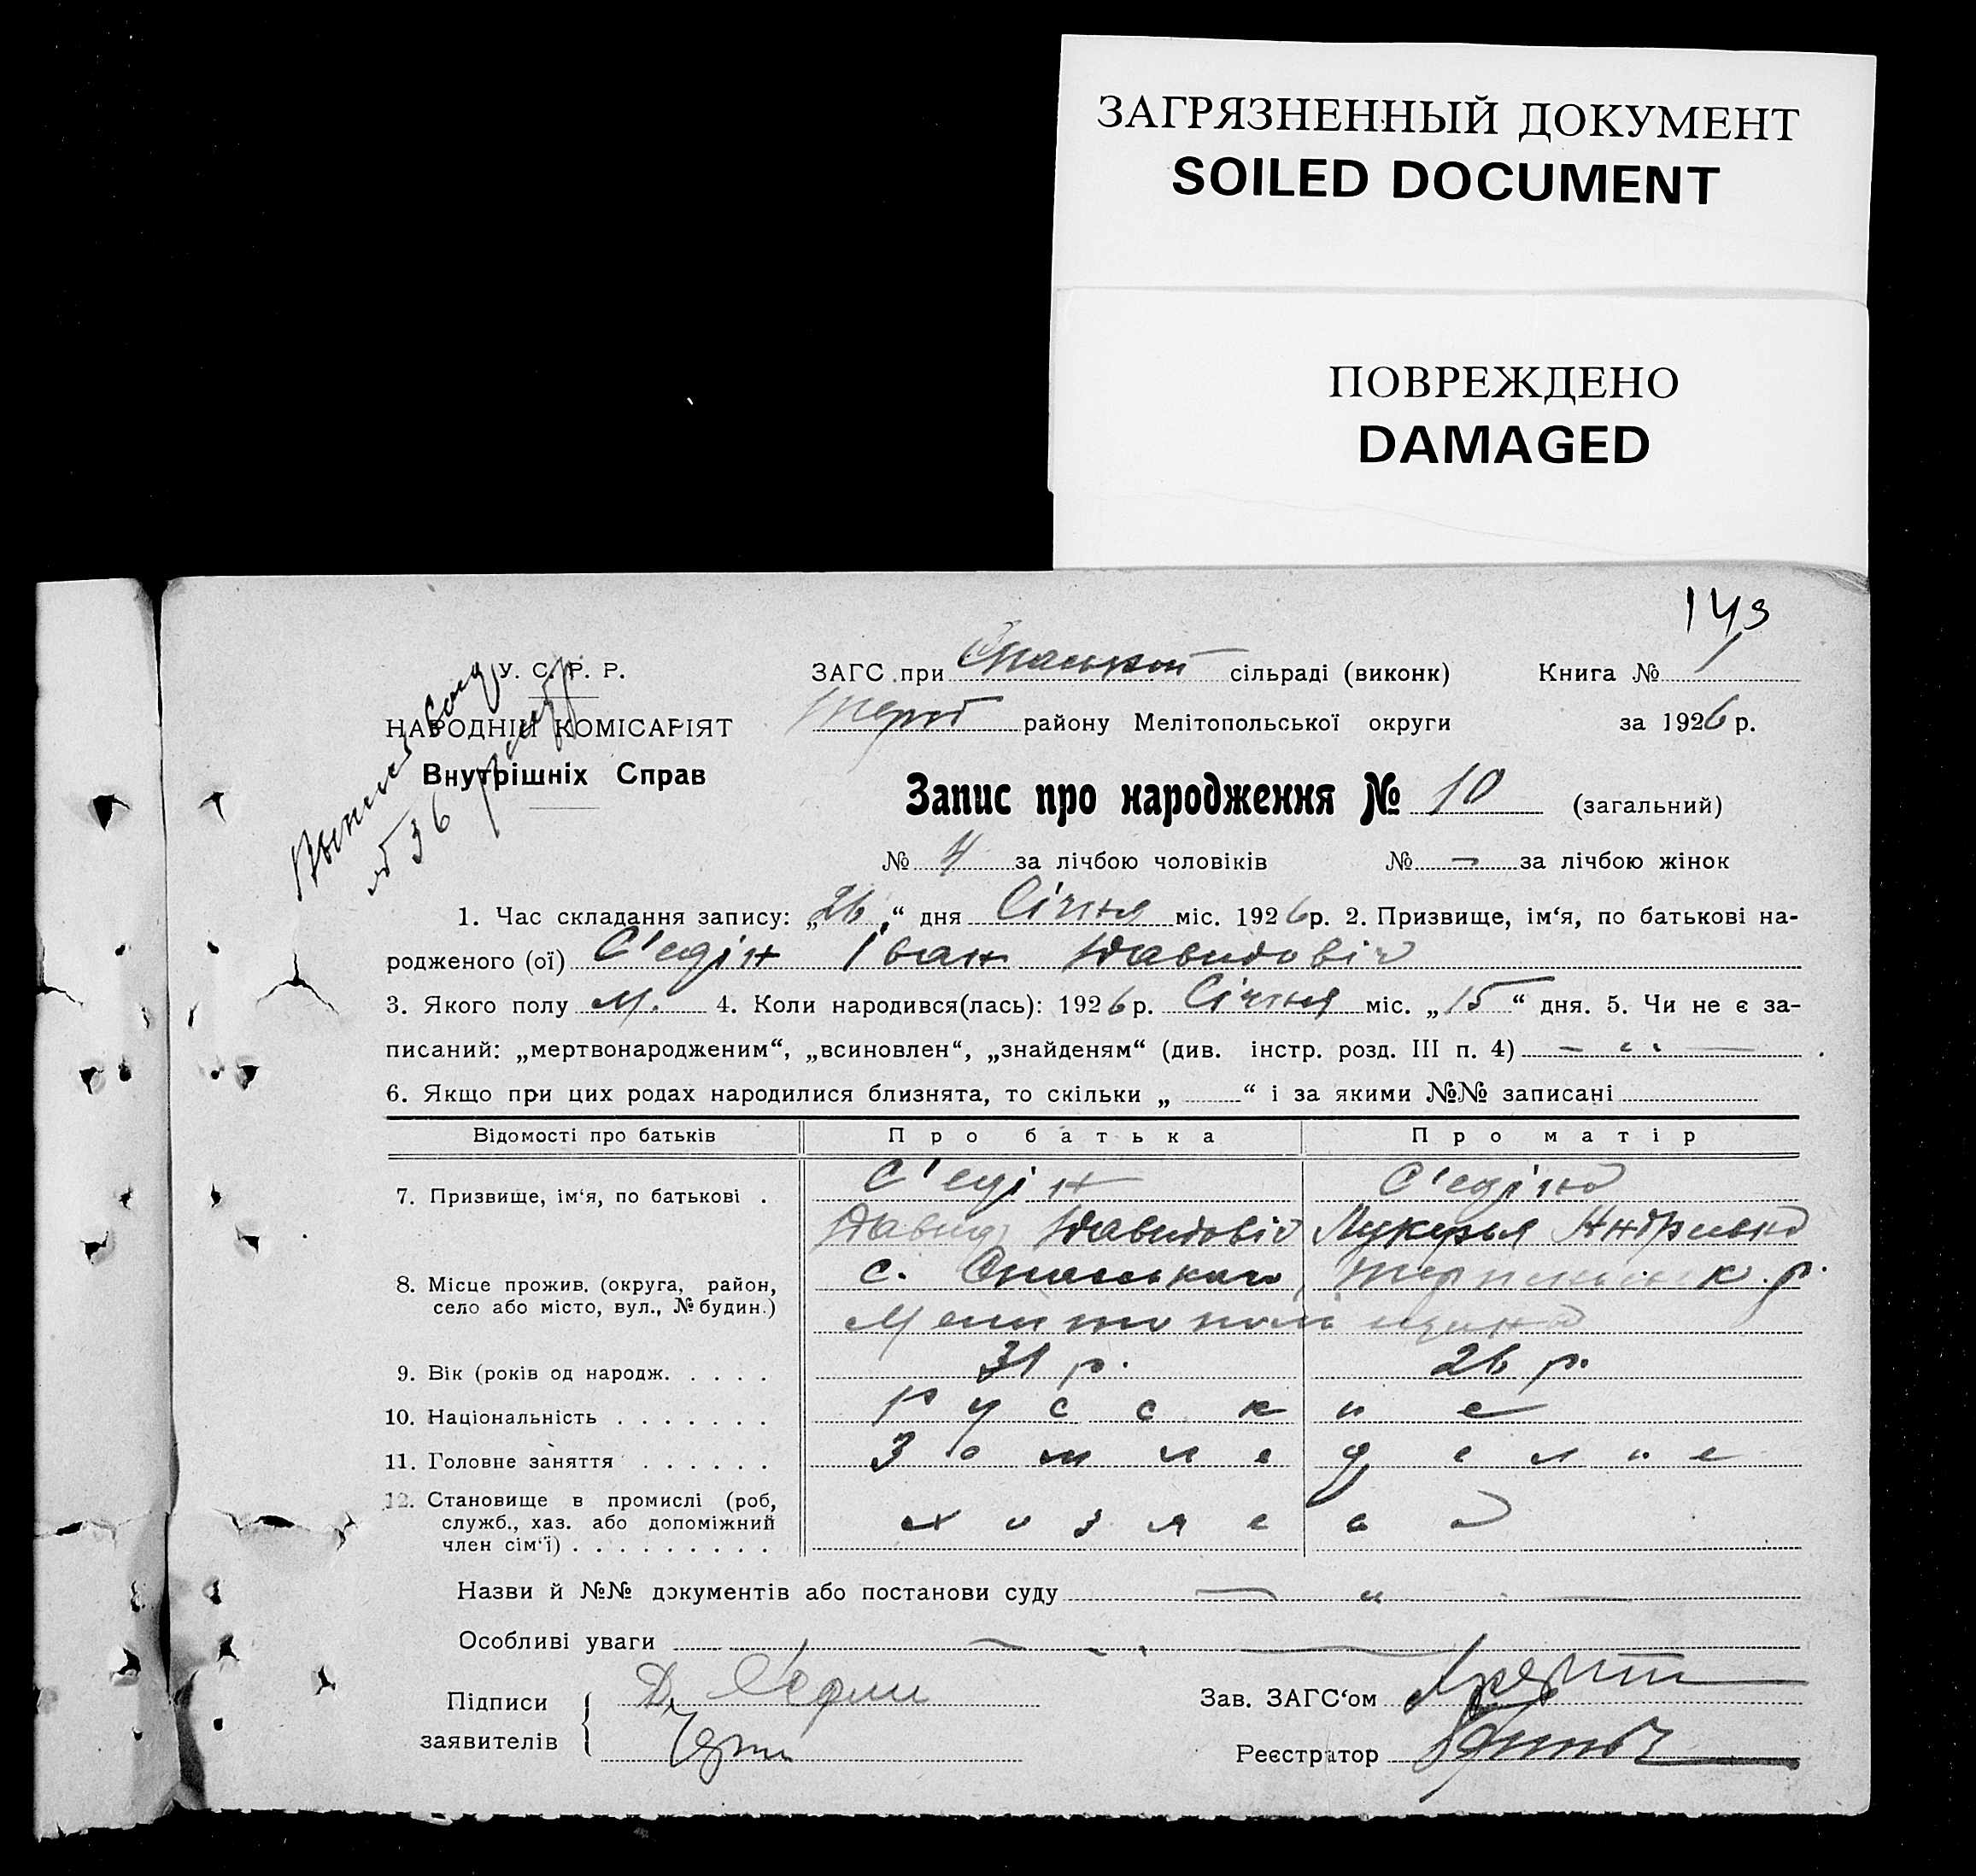 ЗАГРЯЗНЕННЫЙ ДОКУМЕНТ
SOILED DOCUMENT
ПОВРЕЖДЕНО
DAMAGED
143
У. С. Р. Р.
НАРОДНІЙ КОМІСАРІЯТ
Внутрішніх Справ
ЗАГС при Спаській сільраді (виконк) Книга № 1
Терп району Мелітопольської округи за 1926 р.
Запис про народження № 10 (загальний)
№ 4 за лічбою чоловіків № — за лічбою жінок
1. Час складання запису: „26“ дня Січня міс. 1926 р. 2. Призвище, ім‘я, по батькові на-
родженого (ої) С'едін Іван Давидовіч
3. Якого полу м. 4. Коли народився(лась): 1926 р. Січня міс. „15“ дня. 5. Чи не є за-
писаний: „мертвонародженим“, „всиновлен“, „знайденям“ (див. інстр. розд. III п. 4) — „ —
6. Якщо при цих родах народилися близнята, то скільки „ “ і за якими №№ записані
Відомості про батьків Про батька Про матір
7. Призвище, ім‘я, по батькові . С'едін С'едіна
Давид Давидовіч Лукерья Андріевна
8. Місце прожив. (округа, район, с. Спаського, р.
село або місто, вул., № будин.)
9. Вік (років од народж. . . . . 31 р. 26 р.
10. Національність . . . . . . . Русские
11. Головне заняття . . . . . . Земледелие
12. Становище в промислі (роб,
служб., хаз. або допоміжний
член сім‘ї) . . . . . . . . .
Назви й №№ документів або постанови суду — „ —
Особливі уваги — „ —
Підписи Д. С'един
заявителів
Зав. ЗАГС‘ом
Реєстратор